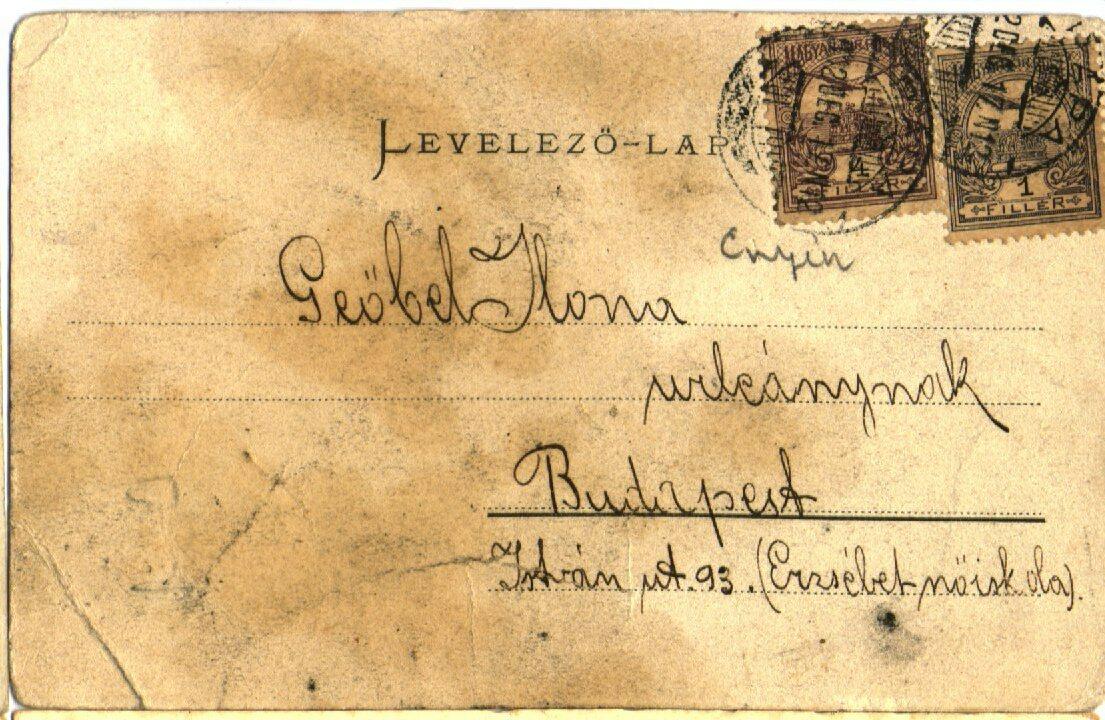 LEVELEZŐ-LAP
MAGYAR
4
FILLÉR
1
FILLÉR
Geöbel Ilona
urleánynak
Budapest
István út. 93. (Erzsébet nőiskola).